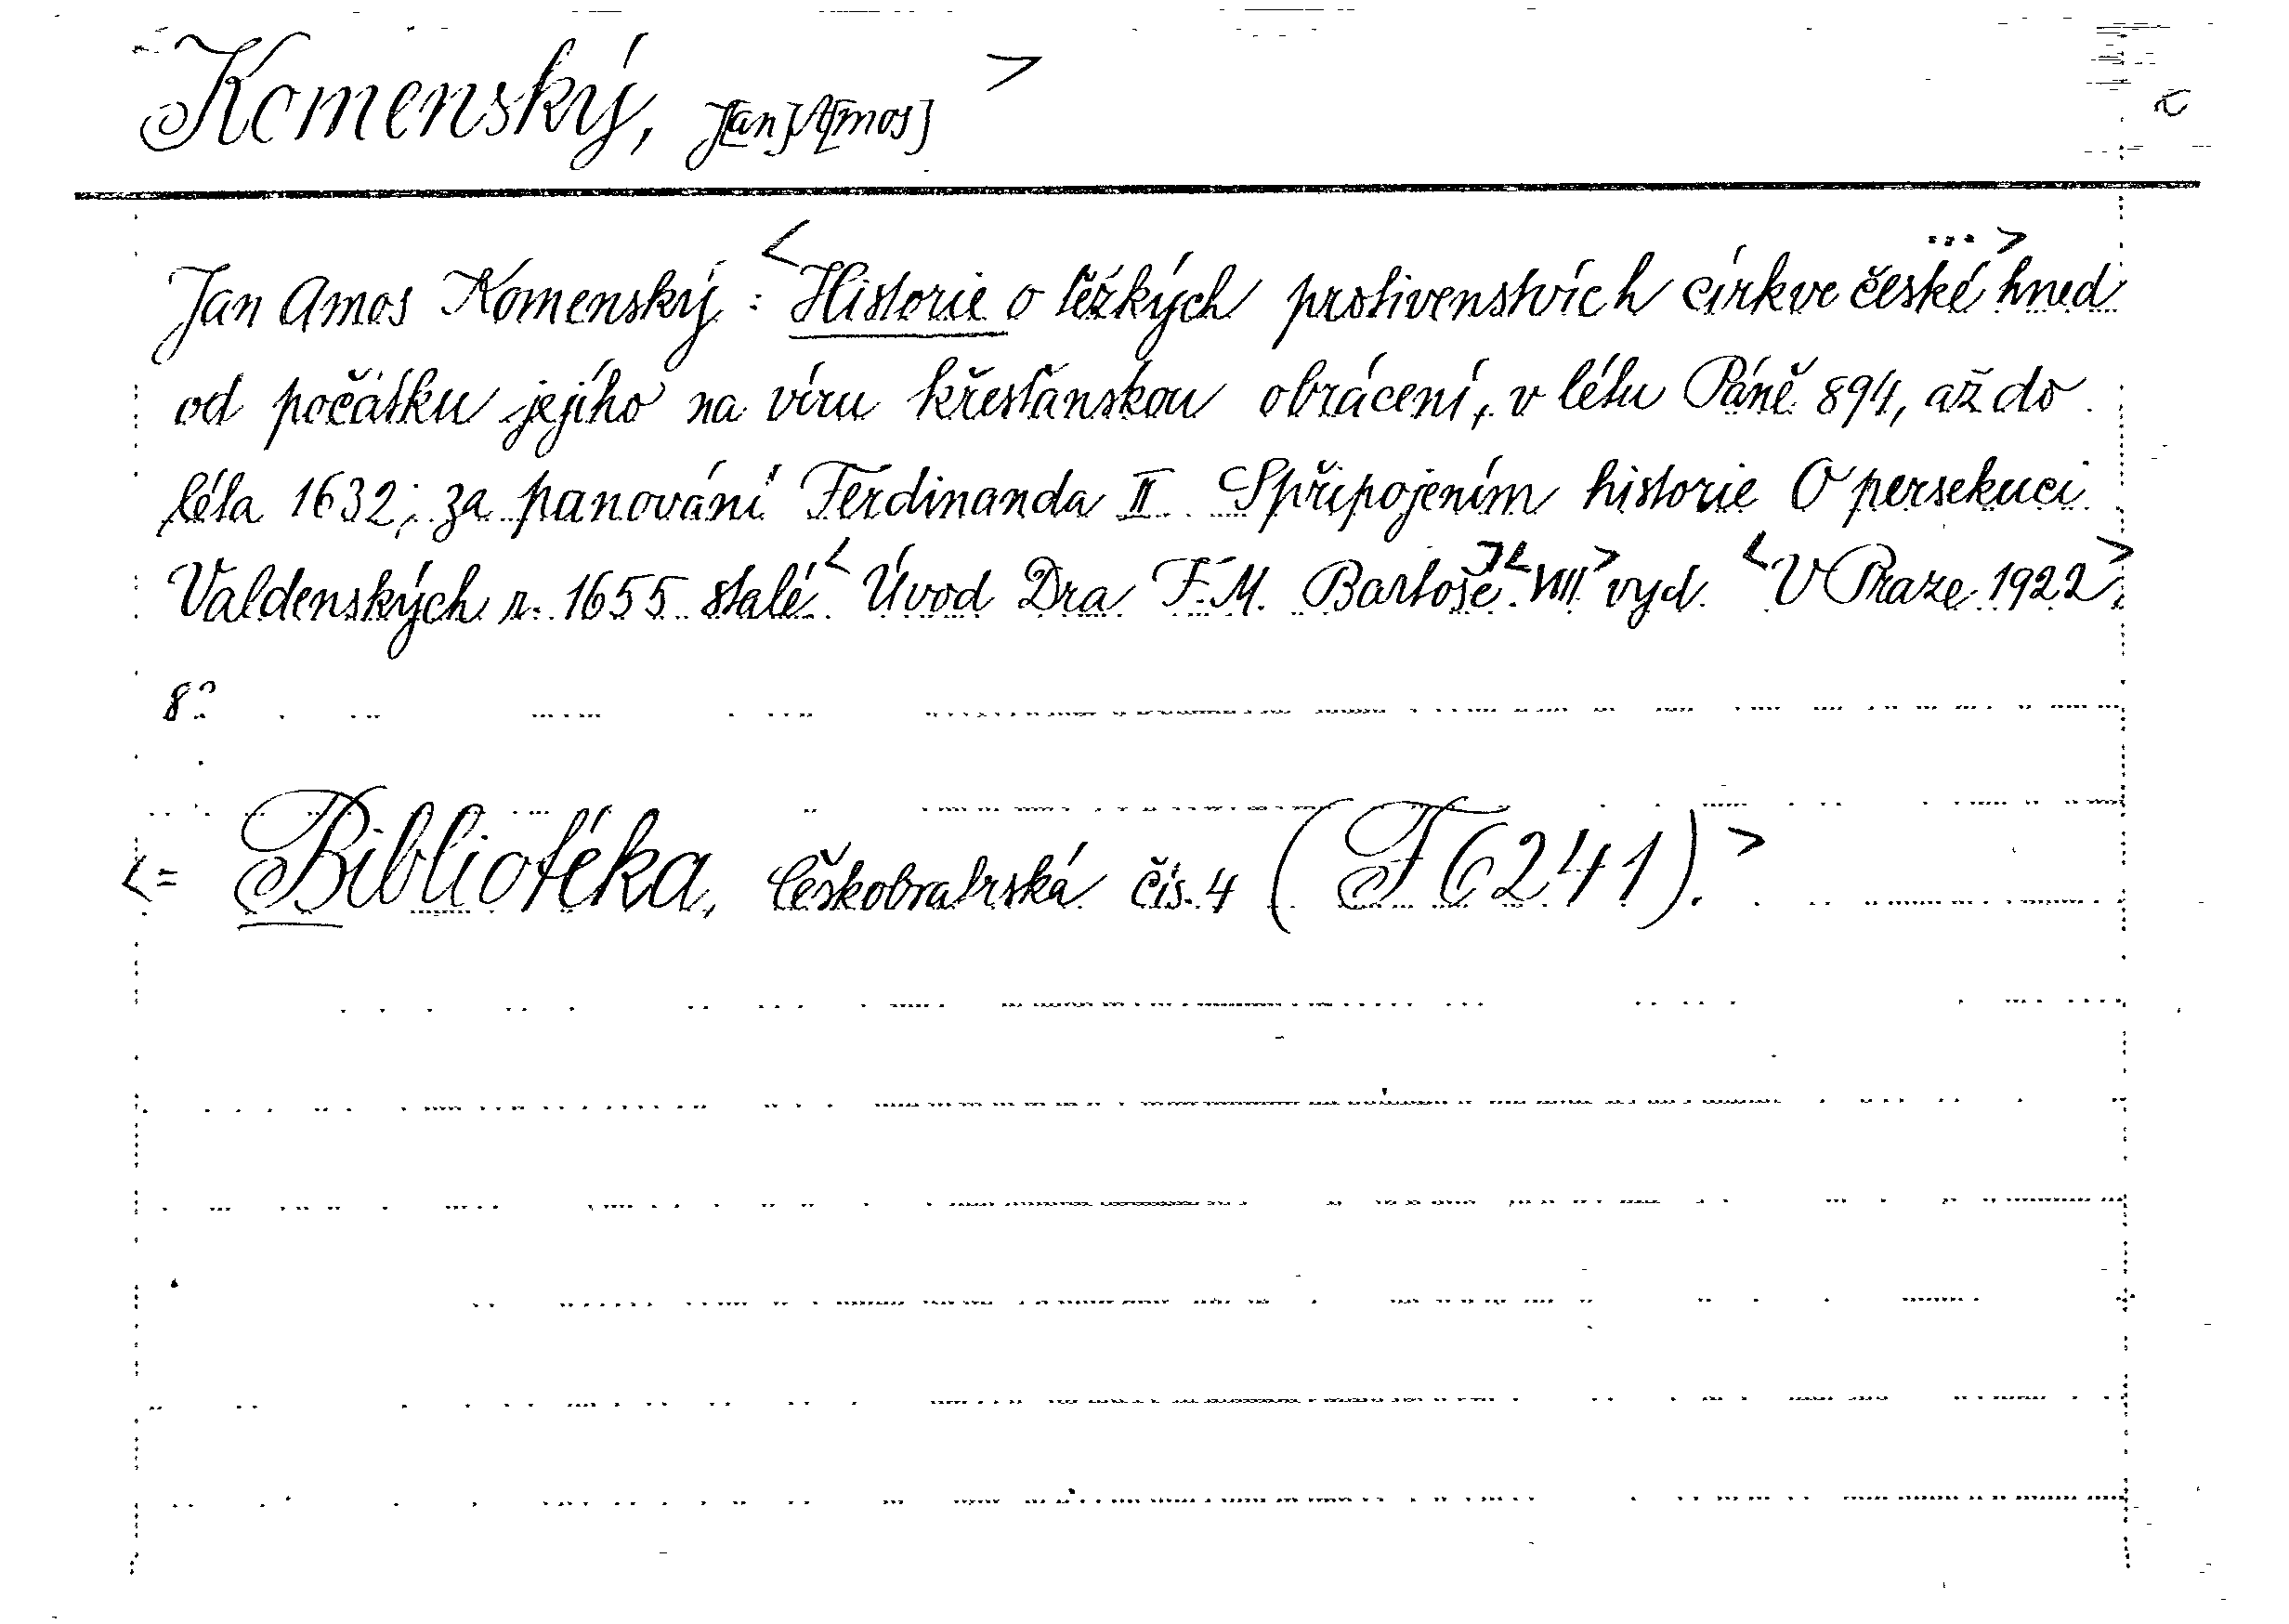 Komenský, J[an] A[mos] >
Jan Amos Komenský : <Historie o těžkých protivenstvích církve české ...> hned
od počátku jejího na víru křesťanskou obrácení, v létu Páně 894, až do
léta 1632, za panování Ferdinanda II. S připojením historie O persekuci
Valdenských r. 1655 stalé. <Úvod Dra F. M. Bartoše.>< VIII > vyd. <V Praze 1922>,
8°.
<= Bibliotéka, Českobratrská čís. 4 (F 6241).>